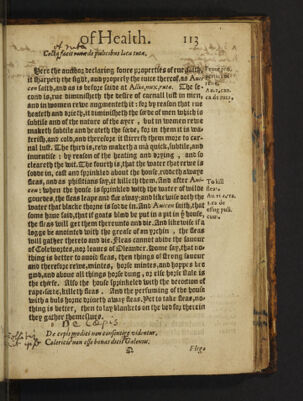 of Health. 113
Cocta facit ruta de pulicibus loca tuta.
Here the author declaring foure properties of rue saith,
it sharpeth the sight, and properly the iuice thereof, as Aui-
cen saith, and as is before saide at Allia, nux, ruta. The se-
cond is, rue diminisheth the desire of carnall lust in men,
and in women rewe augmenteth it: for by reason that rue
heateth and drieth, it diminisheth the seede of men which is
subtile and of the nature of the ayre, but in women rewe
maketh subtile and heateth the seede, for in them it is wa-
terish, and cold, and therefore it stirreth them more to car-
nall lust. The third is, rew maketh a mā quick, subtile, and
inuentiue: by reason of the heating and drying, and so
cleareth the wit. The fourth is, that the water that rewe is
sodde in, cast and sprinkled about the house, riddeth away
fleas, and as phisitians say, it killeth them. And after Aui-
cen: when the house is sprinkled with the water of wilde
gourdes, the fleas leape and flie away: and likewise doth the
water that blacke thorne is sodde in. And Auicen saith, that
some haue said, that if goats bloud be put in a pit in yͤ house,
the fleas will get them thereunto and die. And likewise if a
logge be anointed with the grease of an yrchin, the fleas
will gather thereto and die. Fleas cannot abide the sauour
of Colewortes, nor leaues of Oleander. Some say, that no-
thing is better to auoid fleas, then things of strong sauour
and therefore rewe, mintes, horse mintes, and hoppes are
good, and aboue all things horse dung, or else horse stale is
the chiefe. Also the house sprinkeled with the decoction of
rape-seede, killeth fleas. And the perfuming of the house
with a buls horne driueth away fleas. Yet to take fleas, no-
thing is better, then to lay blankets on the bed for therein
they gather themselues.
To kill
fleas.
De Cæpis
De cepis medici non consentire videntur,
Colericis non esse bonas dicit Galenus.
Flegs